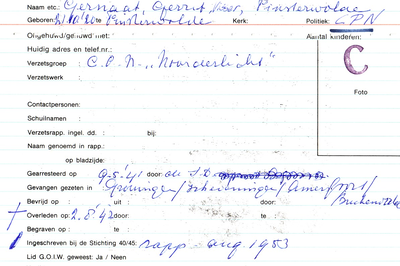 Naam etc.: Gernaat, Gerrit, Finsterwolde
Geboren: Finsterwolde Kerk: Politiek: CPN
Ongehuwd/gehuwd met: Aantal kinderen:
Huidig adres en telef.nr.: C
Verzetsgroep : C.P.N. "Noorderlicht"
Verzetswerk :
Foto
Contactpersonen:
Schuilnaam :
Verzetsrapp. ingel. dd. : bij:
Naam genoemd in rapp.:
op bladzijde:
Gearresteerd op 9-5-'41 door: de S.D.
Gevangen gezeten in Groningen/Scheveningen/Amersfoort/
Bevrijd op : uit : door: Buchenwalde
Overleden op: 2.8.'42 door: te :
Begraven op : te :
Ingeschreven bij de Stichting 40/45: rapp. aug. 1953
Lid G.O.I.W. geweest: Ja / Neen